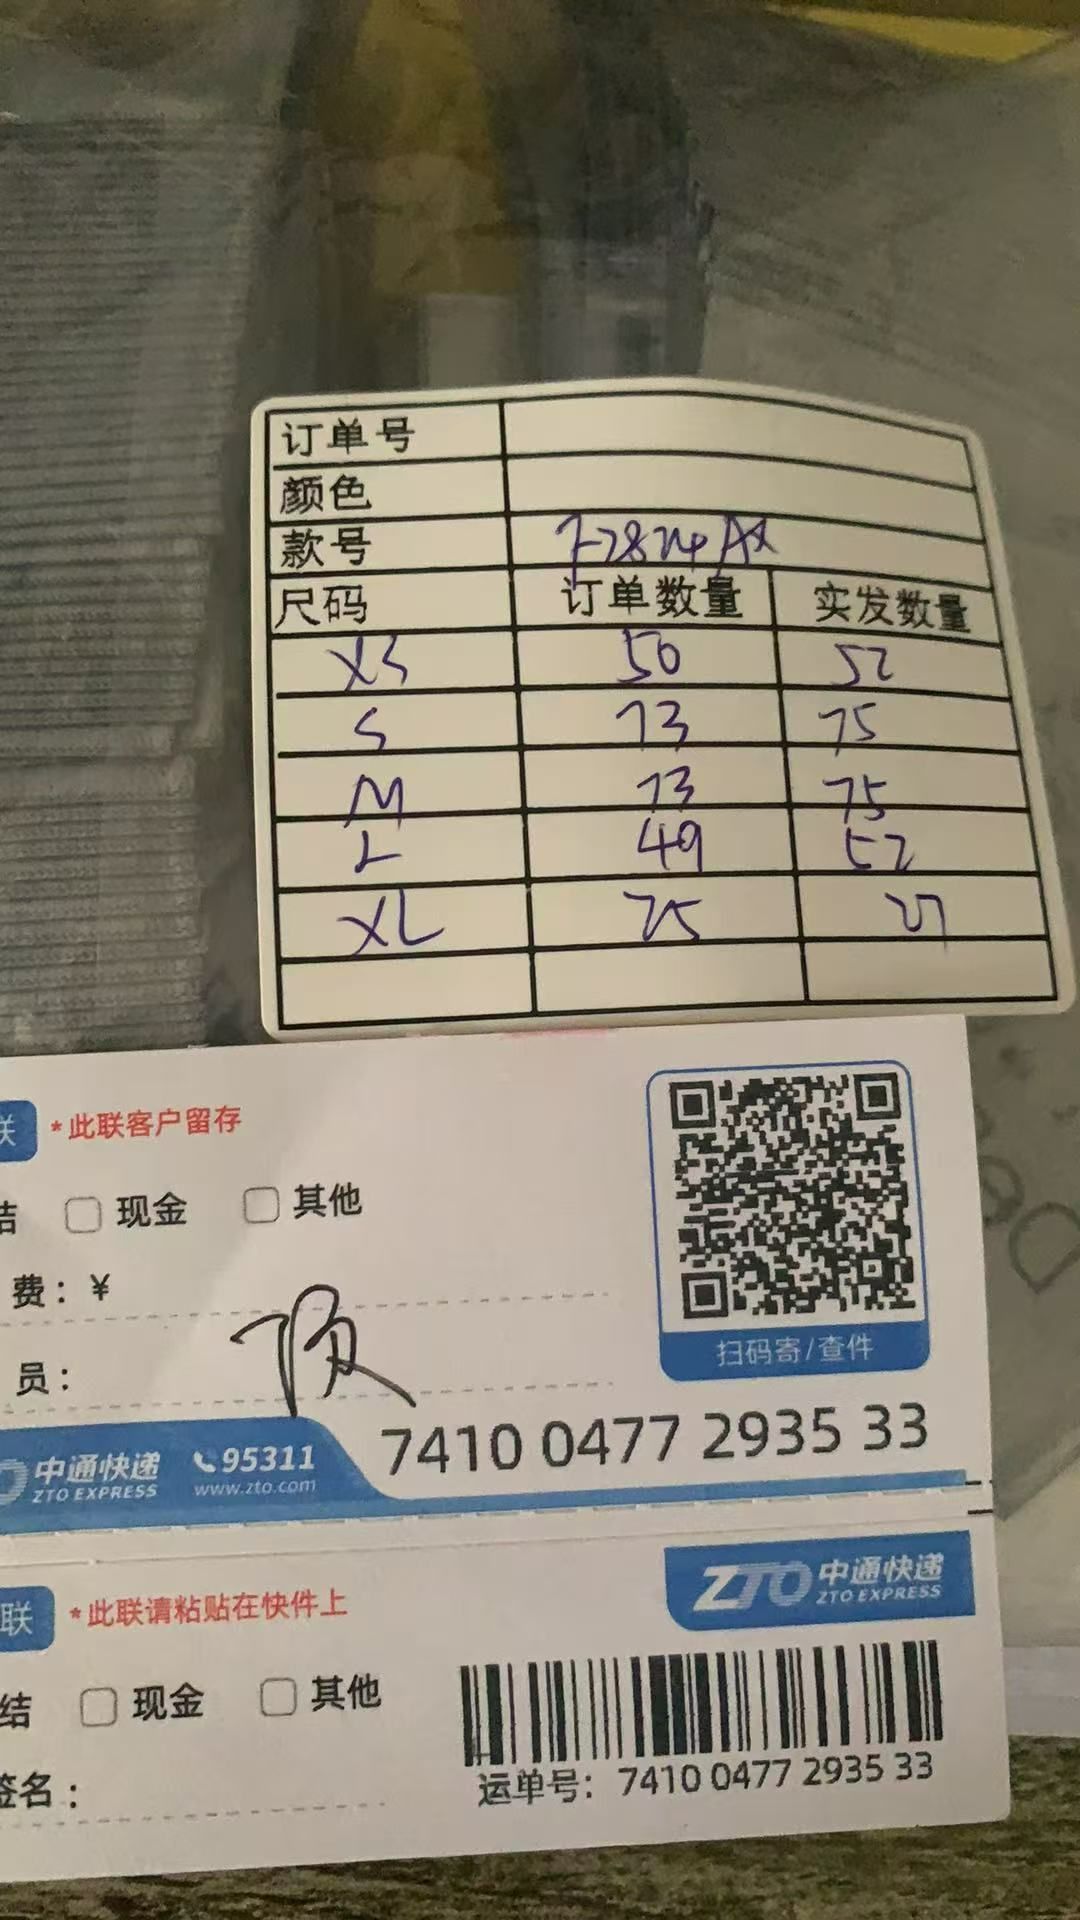 订单号
颜色
款号
尺码 订单数量 实发数量
XS 50 52
S 73 75
M 73 75
L 49 52
XL 25 27
联 *此联客户留存
结 现金 其他
费：¥
员：
扫码寄/查件
7410 0477 2935 33
中通快递 95311
ZTO EXPRESS www.zto.com
联 *此联请粘贴在快件上
ZTO 中通快递
ZTO EXPRESS
结 现金 其他
签名：
运单号：7410 0477 2935 33